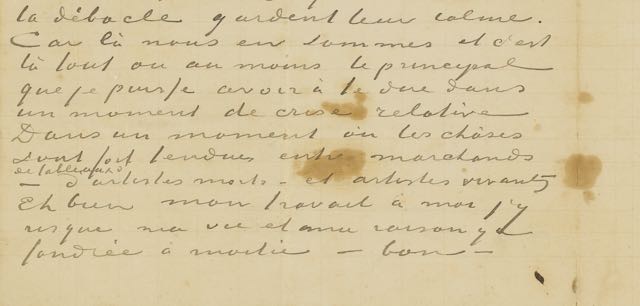 la débacle gardent leur calme.
Car là nous en sommes et c'est
là tout ou au moins le principal
que je puisse avoir à te dire dans
un moment de crise relative
Dans un moment où les choses
sont fort tendues entre marchands
de tableaux
– d'artistes morts – et artistes vivants
Eh bien mon travail à moi j'y
risque ma vie et ma raison y a
fondrée à moitié – bon –